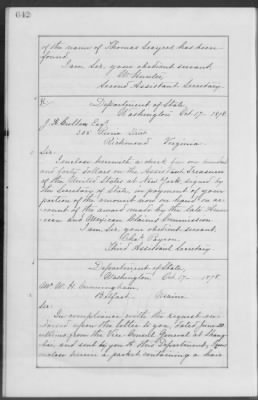 642
of the name of Thomas Seagres has been
found.
I am Sir, your obedient servant,
W. Hunter
Second Assistant Secretary.
R.
Department of State,
Washington Oct. 17. 1878.
J. H. Esq.
Street
Richmond Virginia
Sir:
I enclose herewith a check for one hundred
and forty dollars on the Assistant Treasurer
of the United States at New York, signed by
the Secretary of State, in payment of your
portion of the amount now on hand on ac-
count of the award made by the late Amer-
ican and Mexican Claims Commission.
I am Sir, your obedient servant,
Chas. Payson,
Third Assistant Secretary.
Department of State,
Washington Oct. 17. 1878.
Mr. W. H. Cunningham,
Belfast Maine
Sir:
In compliance with the request en-
dorsed upon the letter to you, dated June 20
ultimo, from the Vice Consul General at Shang-
hai, and sent by you to this Department, I now
enclose herein a packet containing a